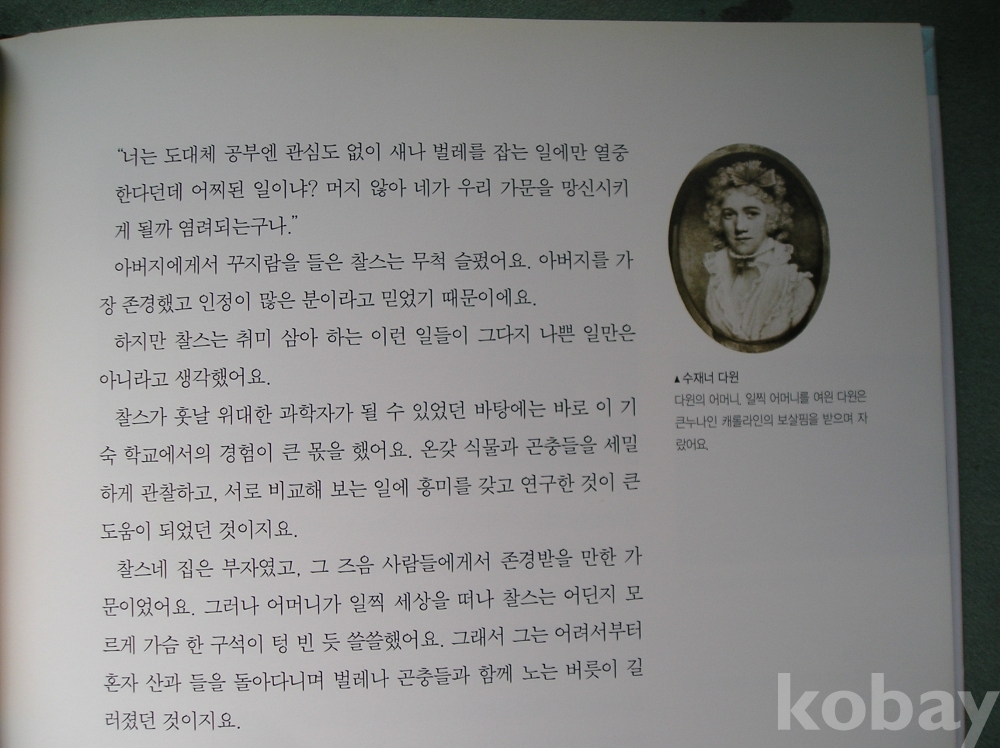 “너는 도대체 공부엔 관심도 없이 새나 벌레를 잡는 일에만 열중
한다던데 어찌된 일이냐? 머지 않아 네가 우리 가문을 망신시키
게 될까 염려되는구나.”
아버지에게서 꾸지람을 들은 찰스는 무척 슬펐어요. 아버지를 가
장 존경했고 인정이 많은 분이라고 믿었기 때문이에요.
하지만 찰스는 취미 삼아 하는 이런 일들이 그다지 나쁜 일만은
아니라고 생각했어요.
찰스가 훗날 위대한 과학자가 될 수 있었던 바탕에는 바로 이 기
숙 학교에서의 경험이 큰 몫을 했어요. 온갖 식물과 곤충들을 세밀
하게 관찰하고, 서로 비교해 보는 일에 흥미를 갖고 연구한 것이 큰
도움이 되었던 것이지요.
찰스네 집은 부자였고, 그 즈음 사람들에게서 존경받을 만한 가
문이었어요. 그러나 어머니가 일찍 세상을 떠나 찰스는 어딘지 모
르게 가슴 한 구석이 텅 빈 듯 쓸쓸했어요. 그래서 그는 어려서부터
혼자 산과 들을 돌아다니며 벌레나 곤충들과 함께 노는 버릇이 길
러졌던 것이지요.
▲수재너 다윈
다윈의 어머니. 일찍 어머니를 여읜 다윈은
큰누나인 캐롤라인의 보살핌을 받으며 자
랐어요.
kobay